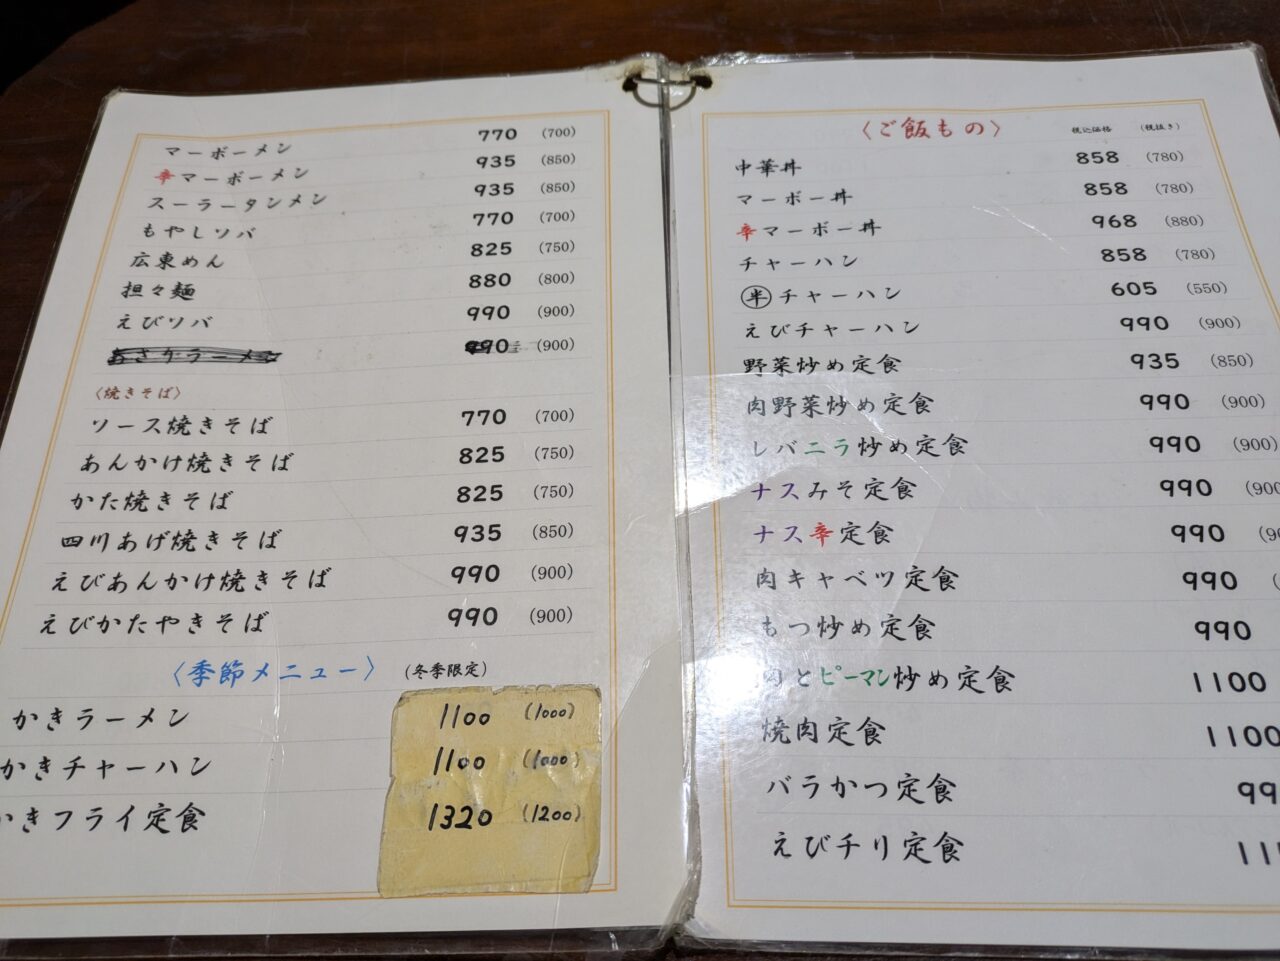 マーボーメン 770 (700)
辛マーボーメン 935 (850)
スーラータンメン 935 (850)
もやしソバ 770 (700)
広東めん 825 (750)
担々麺 880 (800)
えびソバ 990 (900)
あさりラーメン 990 (900)
〈焼きそば〉
ソース焼きそば 770 (700)
あんかけ焼きそば 825 (750)
かた焼きそば 825 (750)
四川あげ焼きそば 935 (850)
えびあんかけ焼きそば 990 (900)
えびかたやきそば 990 (900)
〈季節メニュー〉 (冬季限定)
かきラーメン 1100 (1000)
かきチャーハン 1100 (1000)
かきフライ定食 1320 (1200)
〈ご飯もの〉 税込価格 (税抜き)
中華丼 858 (780)
マーボー丼 858 (780)
辛マーボー丼 968 (880)
チャーハン 858 (780)
半チャーハン 605 (550)
えびチャーハン 990 (900)
野菜炒め定食 935 (850)
肉野菜炒め定食 990 (900)
レバニラ炒め定食 990 (900)
ナスみそ定食 990 (900
ナス辛定食 990 (90
肉キャベツ定食 990 (
もつ炒め定食 990
肉とピーマン炒め定食 1100
焼肉定食 1100
バラかつ定食 99
えびチリ定食 11